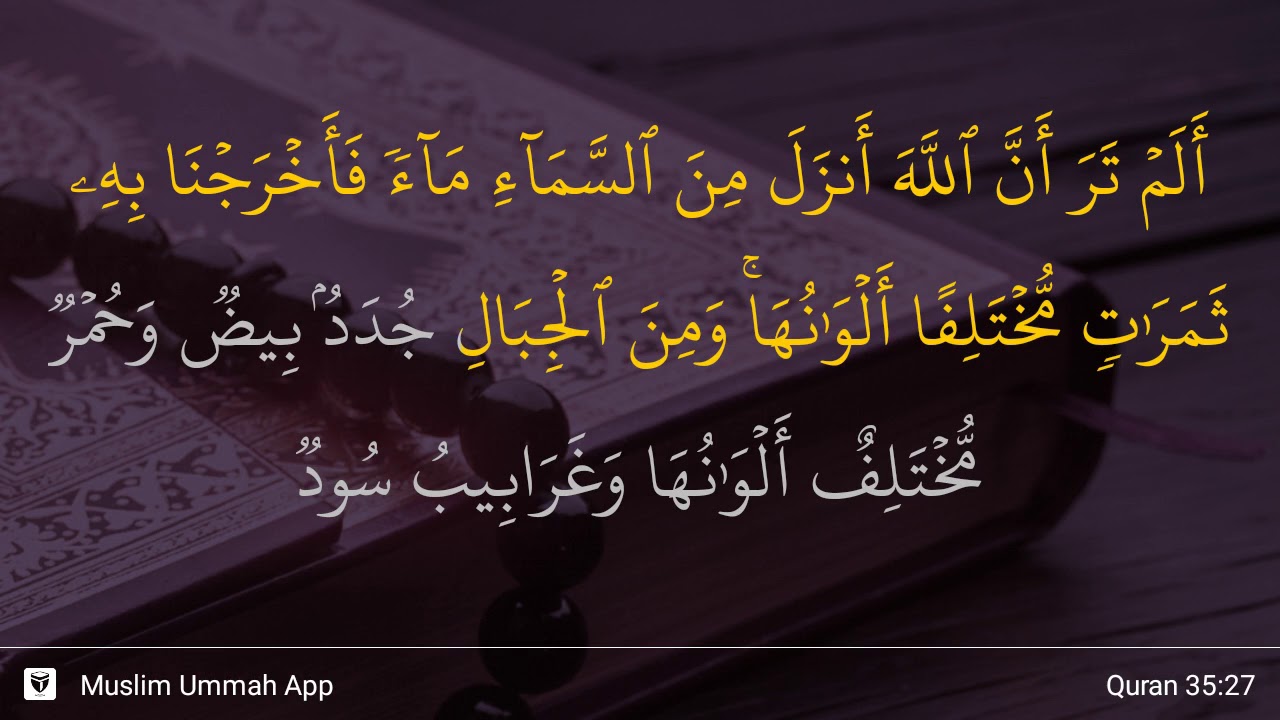 أَلَمْ تَرَ أَنَّ ٱللَّهَ أَنزَلَ مِنَ ٱلسَّمَآءِ مَآءً فَأَخْرَجْنَا بِهِۦ
ثَمَرَٰتٍ مُّخْتَلِفًا أَلْوَٰنُهَا ۚ وَمِنَ ٱلْجِبَالِ جُدَدٌۢ بِيضٌ وَحُمْرٌ
مُّخْتَلِفٌ أَلْوَٰنُهَا وَغَرَابِيبُ سُودٌ
Muslim Ummah App
Quran 35:27